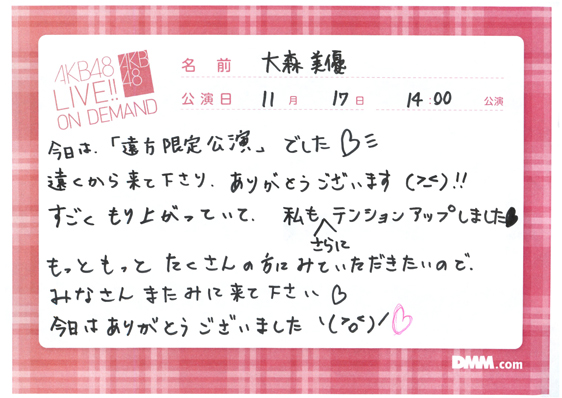 AKB48
LIVE!!
ON DEMAND
AKB
48
名前 大森美優
公演日 11月 17日 14:00 公演
今日は、「遠方限定公演」でした♡
遠くから来て下さり、ありがとうございます(>_<)!!
すごくもり上がっていて、私もテンションアップしました♥
さらに
もっともっとたくさんの方にみていただきたいので、
みなさんまたみに来て下さい♡
今日はありがとうございました\(>o<)/♡
DMM.com